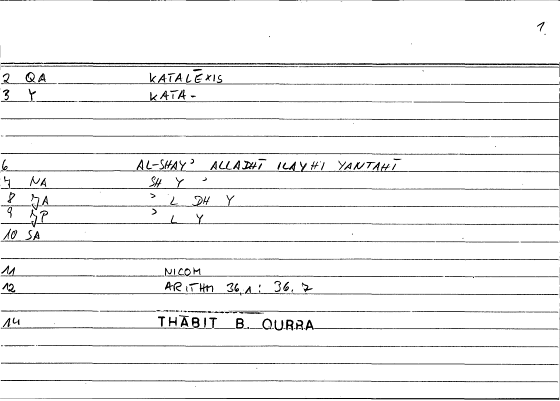 1
2 QA KATALĒXIS
3 Y KATA-
6 AL-SHAY' ALLADHĪ ILAYHI YANTAHĪ
7 NA SH Y '
8 JA ' L DH Y
9 JP ' L Y
10 SA
11 NICOM
12 ARITHM 36,1 : 36,7
14 THĀBIT B. QURRA